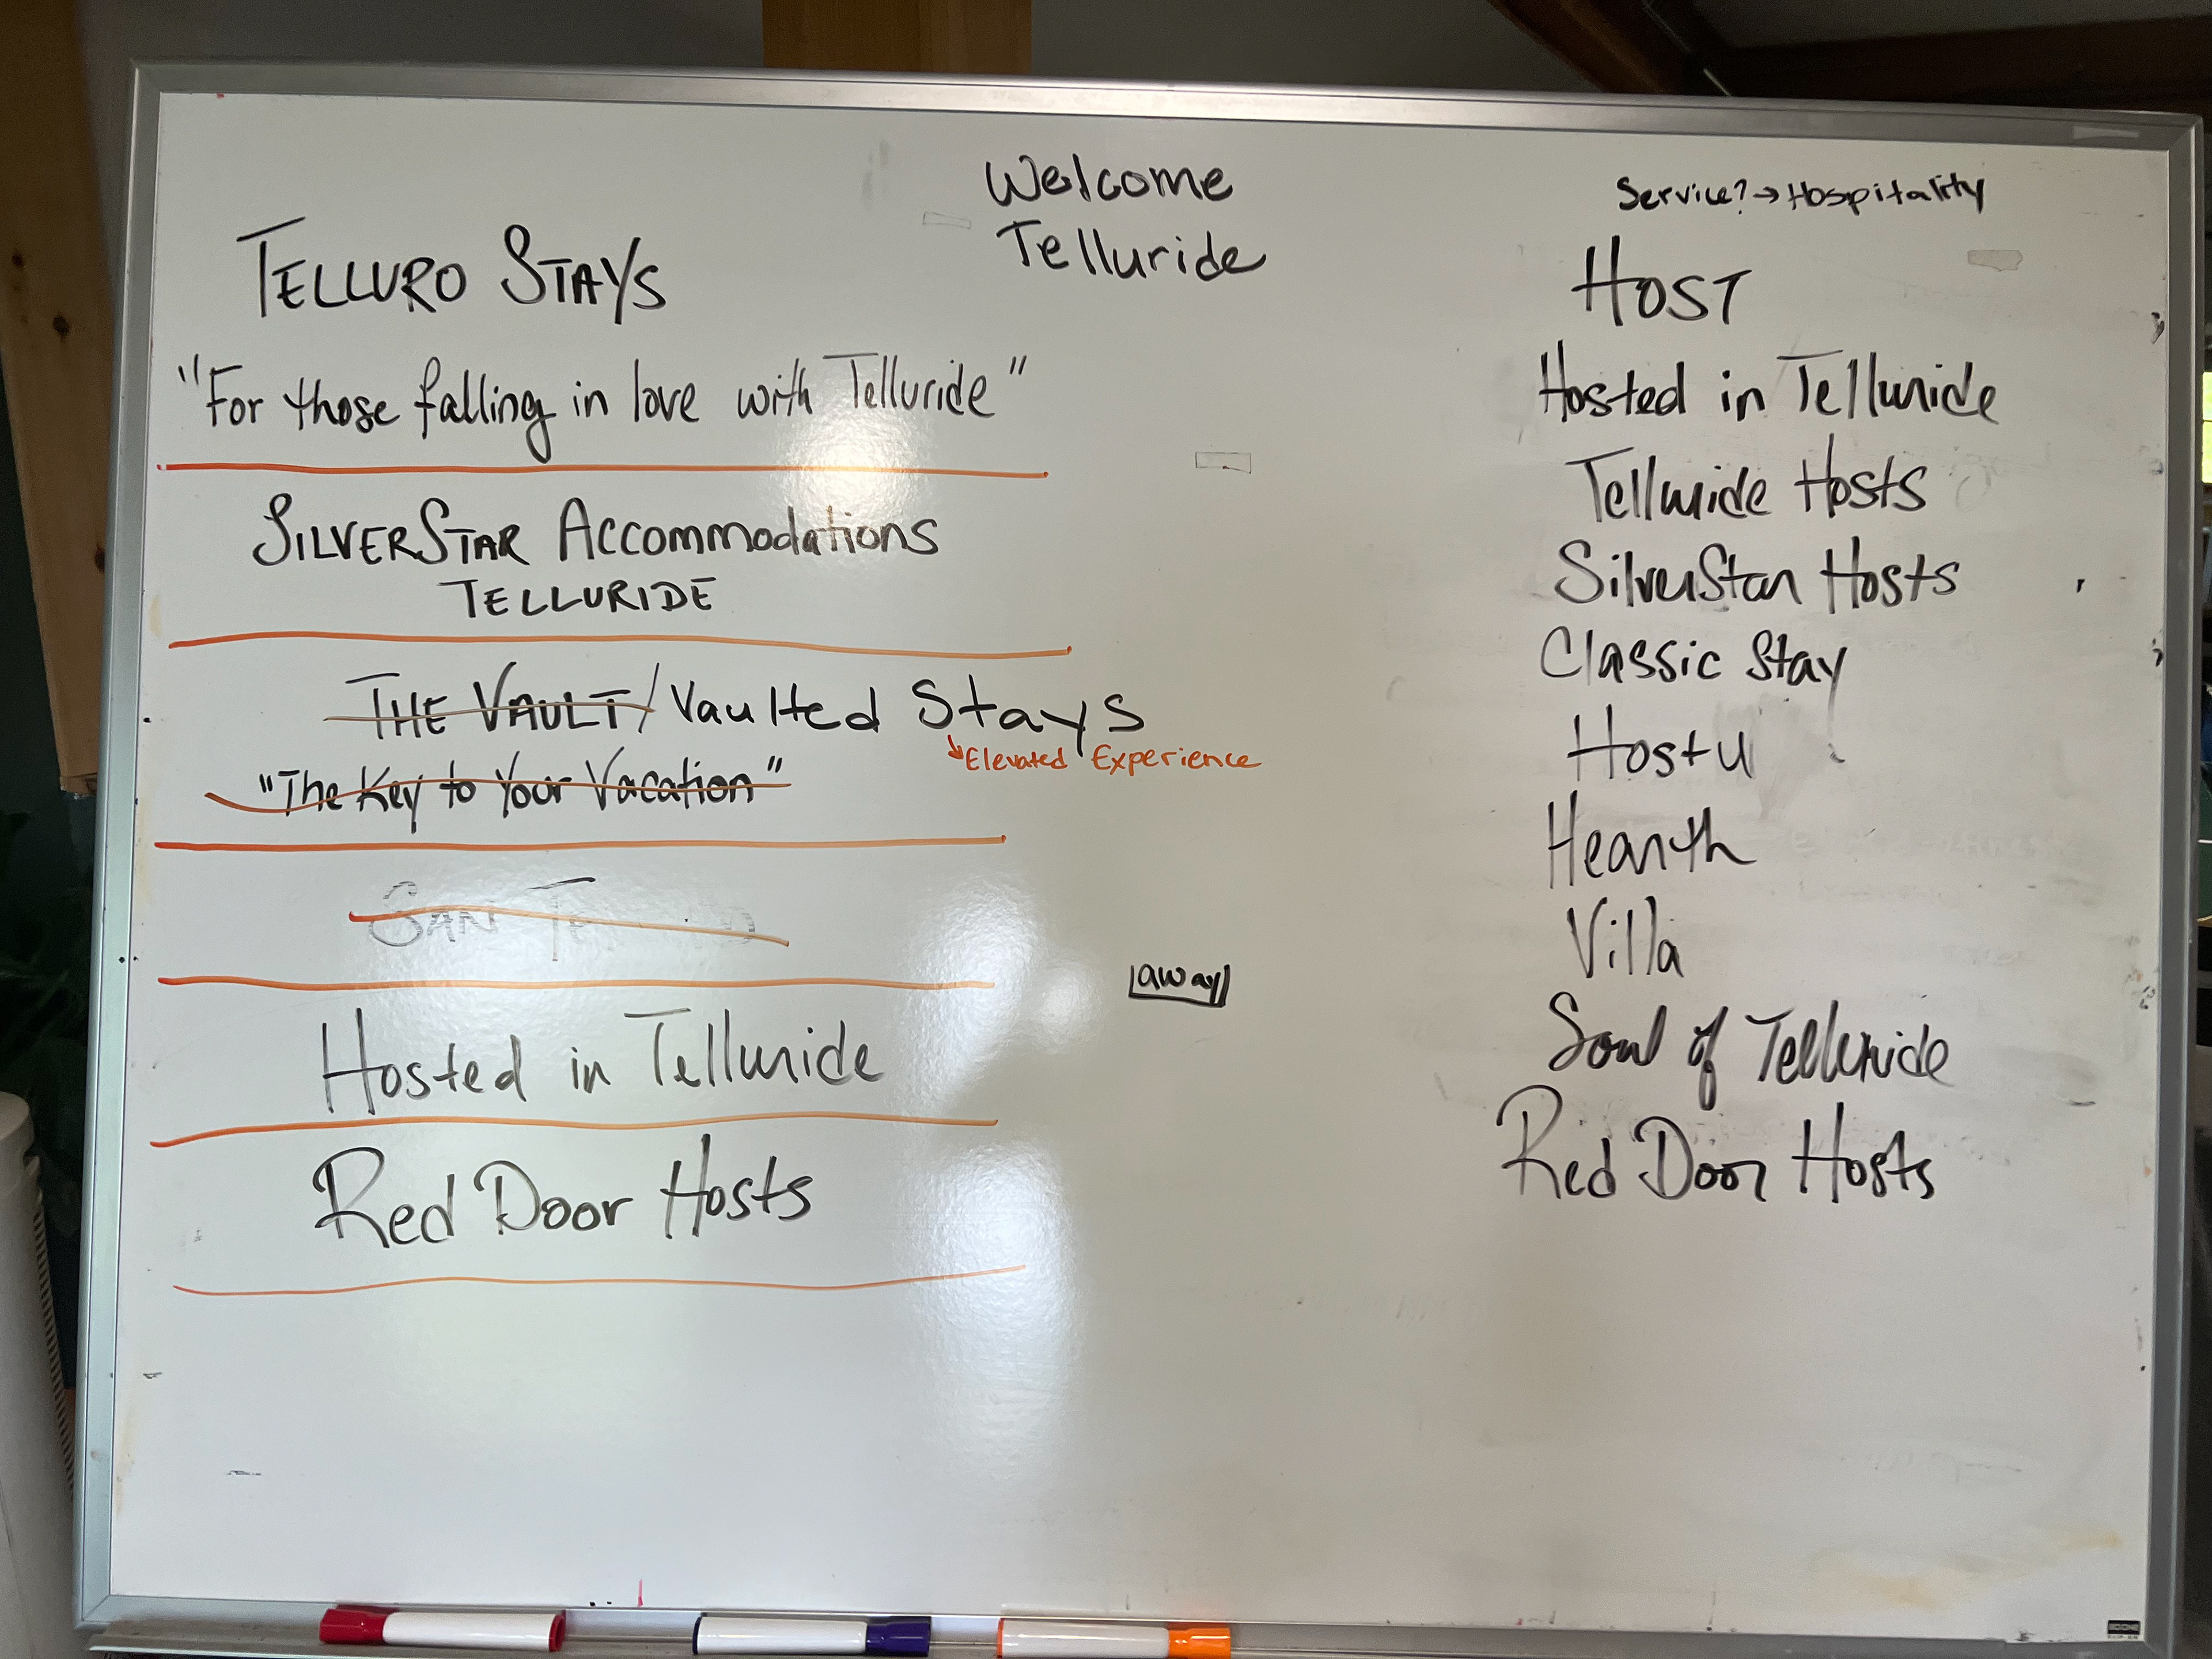 Welcome
Telluride
TELLURO STAYS
"For those falling in love with Telluride"
SILVERSTAR ACCOMMODATIONS
TELLURIDE
THE VAULT/Vaulted Stays
Elevated Experience
"The Key to Your Vacation"
SAN
Hosted in Telluride
Red Door Hosts
away
Service?→Hospitality
HOST
Hosted in Telluride
Telluride Hosts
SilverStar Hosts
Classic Stay
Host U
Hearth
Villa
Soul of Telluride
Red Door Hosts